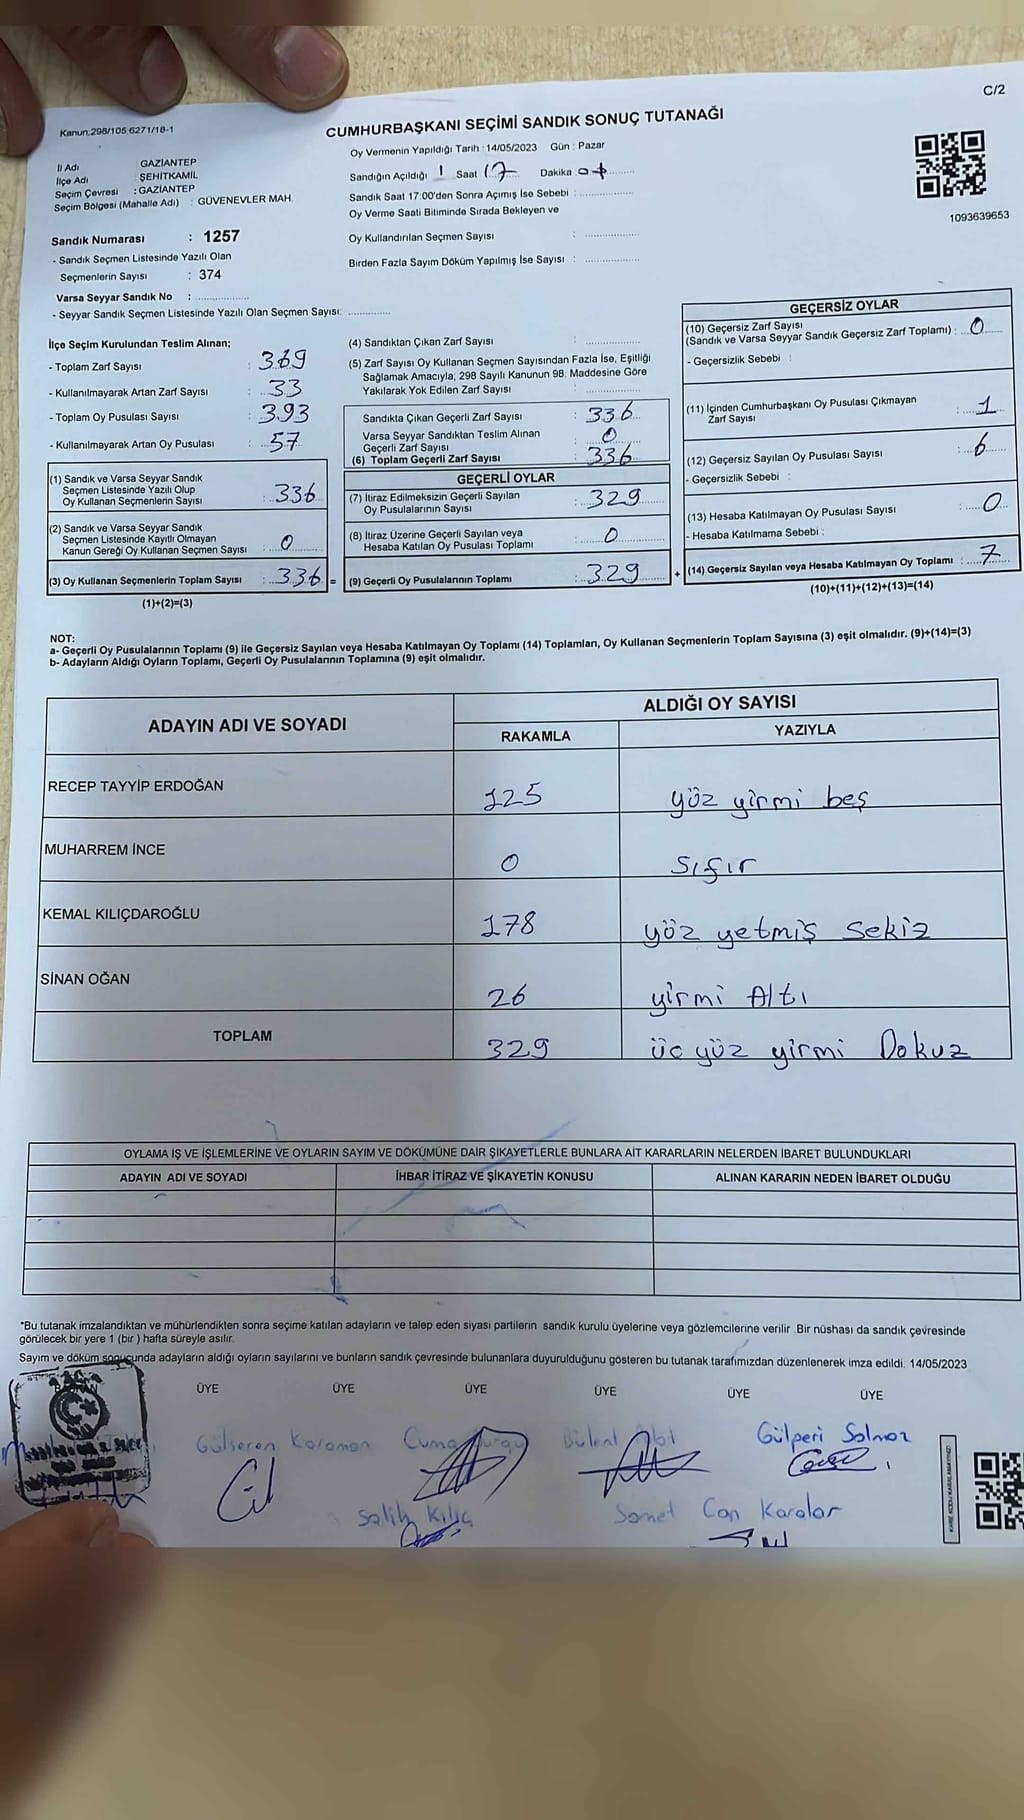 C/2
Kanun;298/105,6271/18-1
CUMHURBAŞKANI SEÇİMİ SANDIK SONUÇ TUTANAĞI
Oy Vermenin Yapıldığı Tarih :14/05/2023 Gün : Pazar
İl Adı : GAZİANTEP
İlçe Adı : ŞEHİTKAMİL
Seçim Çevresi : GAZİANTEP
Seçim Bölgesi (Mahalle Adı) : GÜVENEVLER MAH.
Sandığın Açıldığı Saat 17 Dakika
Sandık Saat 17:00'den Sonra Açımış İse Sebebi :
Oy Verme Saati Bitiminde Sırada Bekleyen ve
Oy Kullandırılan Seçmen Sayısı :
Birden Fazla Sayım Döküm Yapılmış İse Sayısı :
1093639653
Sandık Numarası : 1257
- Sandık Seçmen Listesinde Yazılı Olan
Seçmenlerin Sayısı : 374
Varsa Seyyar Sandık No :
- Seyyar Sandık Seçmen Listesinde Yazılı Olan Seçmen Sayısı:
İlçe Seçim Kurulundan Teslim Alınan;
- Toplam Zarf Sayısı : 369
- Kullanılmayarak Artan Zarf Sayısı : 33
- Toplam Oy Pusulası Sayısı : 393
- Kullanılmayarak Artan Oy Pusulası : 57
(1) Sandık ve Varsa Seyyar Sandık
Seçmen Listesinde Yazılı Olup
Oy Kullanan Seçmenlerin Sayısı : 336
(2) Sandık ve Varsa Seyyar Sandık
Seçmen Listesinde Kayıtlı Olmayan
Kanun Gereği Oy Kullanan Seçmen Sayısı : 0
(3) Oy Kullanan Seçmenlerin Toplam Sayısı : 336 =
(1)+(2)=(3)
(4) Sandıktan Çıkan Zarf Sayısı :
(5) Zarf Sayısı Oy Kullanan Seçmen Sayısından Fazla İse, Eşitliği
Sağlamak Amacıyla; 298 Sayılı Kanunun 98. Maddesine Göre
Yakılarak Yok Edilen Zarf Sayısı :
Sandıkta Çıkan Geçerli Zarf Sayısı : 336
Varsa Seyyar Sandıktan Teslim Alınan
Geçerli Zarf Sayısı : 0
(6) Toplam Geçerli Zarf Sayısı : 336
GEÇERLİ OYLAR
(7) İtiraz Edilmeksizin Geçerli Sayılan
Oy Pusulalarının Sayısı : 329
(8) İtiraz Üzerine Geçerli Sayılan veya
Hesaba Katılan Oy Pusulası Toplamı : 0
(9) Geçerli Oy Pusulalarının Toplamı : 329 +
GEÇERSİZ OYLAR
(10) Geçersiz Zarf Sayısı
(Sandık ve Varsa Seyyar Sandık Geçersiz Zarf Toplamı) : 0
- Geçersizlik Sebebi :
(11) İçinden Cumhurbaşkanı Oy Pusulası Çıkmayan
Zarf Sayısı : 1
(12) Geçersiz Sayılan Oy Pusulası Sayısı : 6
- Geçersizlik Sebebi :
(13) Hesaba Katılmayan Oy Pusulası Sayısı : 0
- Hesaba Katılmama Sebebi :
(14) Geçersiz Sayılan veya Hesaba Katılmayan Oy Toplamı : 7
(10)+(11)+(12)+(13)=(14)
NOT:
a- Geçerli Oy Pusulalarının Toplamı (9) ile Geçersiz Sayılan veya Hesaba Katılmayan Oy Toplamı (14) Toplamları, Oy Kullanan Seçmenlerin Toplam Sayısına (3) eşit olmalıdır. (9)+(14)=(3)
b- Adayların Aldığı Oyların Toplamı, Geçerli Oy Pusulalarının Toplamına (9) eşit olmalıdır.
ADAYIN ADI VE SOYADI
ALDIĞI OY SAYISI
RAKAMLA YAZIYLA
RECEP TAYYİP ERDOĞAN 125 yöz yirmi beş
MUHARREM İNCE 0 sıfır
KEMAL KILIÇDAROĞLU 178 yöz yetmiş sekiz
SİNAN OĞAN 26 yirmi Altı
TOPLAM 329 üc yüz yirmi Dokuz
OYLAMA İŞ VE İŞLEMLERİNE VE OYLARIN SAYIM VE DÖKÜMÜNE DAİR ŞİKAYETLERLE BUNLARA AİT KARARLARIN NELERDEN İBARET BULUNDUKLARI
ADAYIN ADI VE SOYADI İHBAR İTİRAZ VE ŞİKAYETİN KONUSU ALINAN KARARIN NEDEN İBARET OLDUĞU
*Bu tutanak imzalandıktan ve mühürlendikten sonra seçime katılan adayların ve talep eden siyasi partilerin sandık kurulu üyelerine veya gözlemcilerine verilir .Bir nüshası da sandık çevresinde
görülecek bir yere 1 (bir ) hafta süreyle asılır.
Sayım ve döküm sonucunda adayların aldığı oyların sayılarını ve bunların sandık çevresinde bulunanlara duyurulduğunu gösteren bu tutanak tarafımızdan düzenlenerek imza edildi. 14/05/2023
ÜYE ÜYE ÜYE ÜYE ÜYE ÜYE
Gülseren Karaman Cuma Bülent Gülperi Solmaz
Salih Kılıç Samet Can Karalar